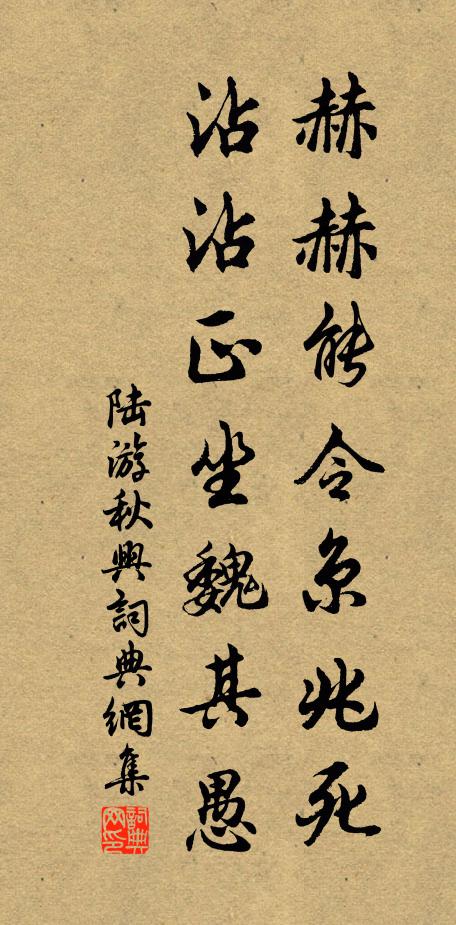 赫赫能令京兆死
沾沾正坐魏其愚
陆游秋興詞典網集
詞典
网印